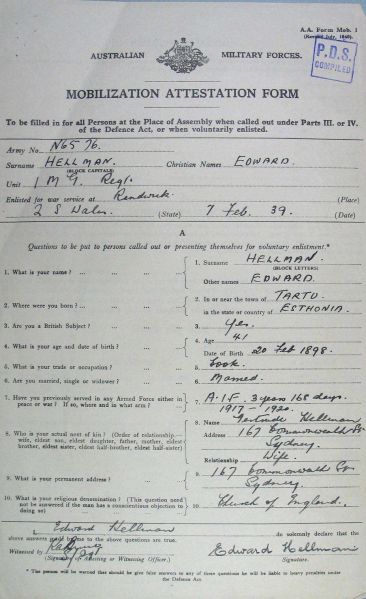 A.A. Form Mob. 1
P.D.S.
COMPILED
AUSTRALIAN MILITARY FORCES.
MOBILIZATION ATTESTATION FORM
To be filled in for all Persons at the Place of Assembly when called out under Parts III. or IV.
of the Defence Act, or when voluntarily enlisted.
Army No. N65 76.
Surname HELLMAN. Christian Names EDWARD.
(BLOCK CAPITALS)
Unit 1 M G Regt.
Enlisted for war service at Randwick (Place)
(State) 7 Feb. 39. (Date)
A
Questions to be put to persons called out or presenting themselves for voluntary enlistment.*
1. What is your name? ... ... ... 1. Surname HELLMAN.
(BLOCK LETTERS)
Other names EDWARD.
2. Where were you born? ... ... ... 2. In or near the town of TARTU
in the state or country of ESTHONIA
3. Are you a British Subject? ... ... 3. yes.
4. What is your age and date of birth? ... 4. Age 41
Date of Birth 20 Feb 1898.
5. What is your trade or occupation? ... 5. Cook.
6. Are you married, single or widower? ... 6. Married.
7. Have you previously served in any Armed Force either in
peace or war? If so, where and in what arm? ... 7. A.I.F. 3 years 168 days.
1917 - 1920.
8. Who is your actual next of kin? (Order of relationship,
wife, eldest son, eldest daughter, father, mother, eldest
brother, eldest sister, eldest half-brother, eldest half-sister) 8. Name Gertrude Hellman
Address 167 Commonwealth St
Sydney.
Relationship Wife.
9. What is your permanent address? ... 9. 167 Commonwealth St
Sydney.
10. What is your religious denomination? (This question need
not be answered if the man has a conscientious objection to
doing so) ... 10. Church of England.
I, Edward Hellman do solemnly declare that the
above answers made by me to the above questions are true.
Witnessed by Edward Hellman
(Signature of Attesting or Witnessing Officer.) Signature.
* The person will be warned that should he give false answers to any of these questions he will be liable to heavy penalties under
the Defence Act